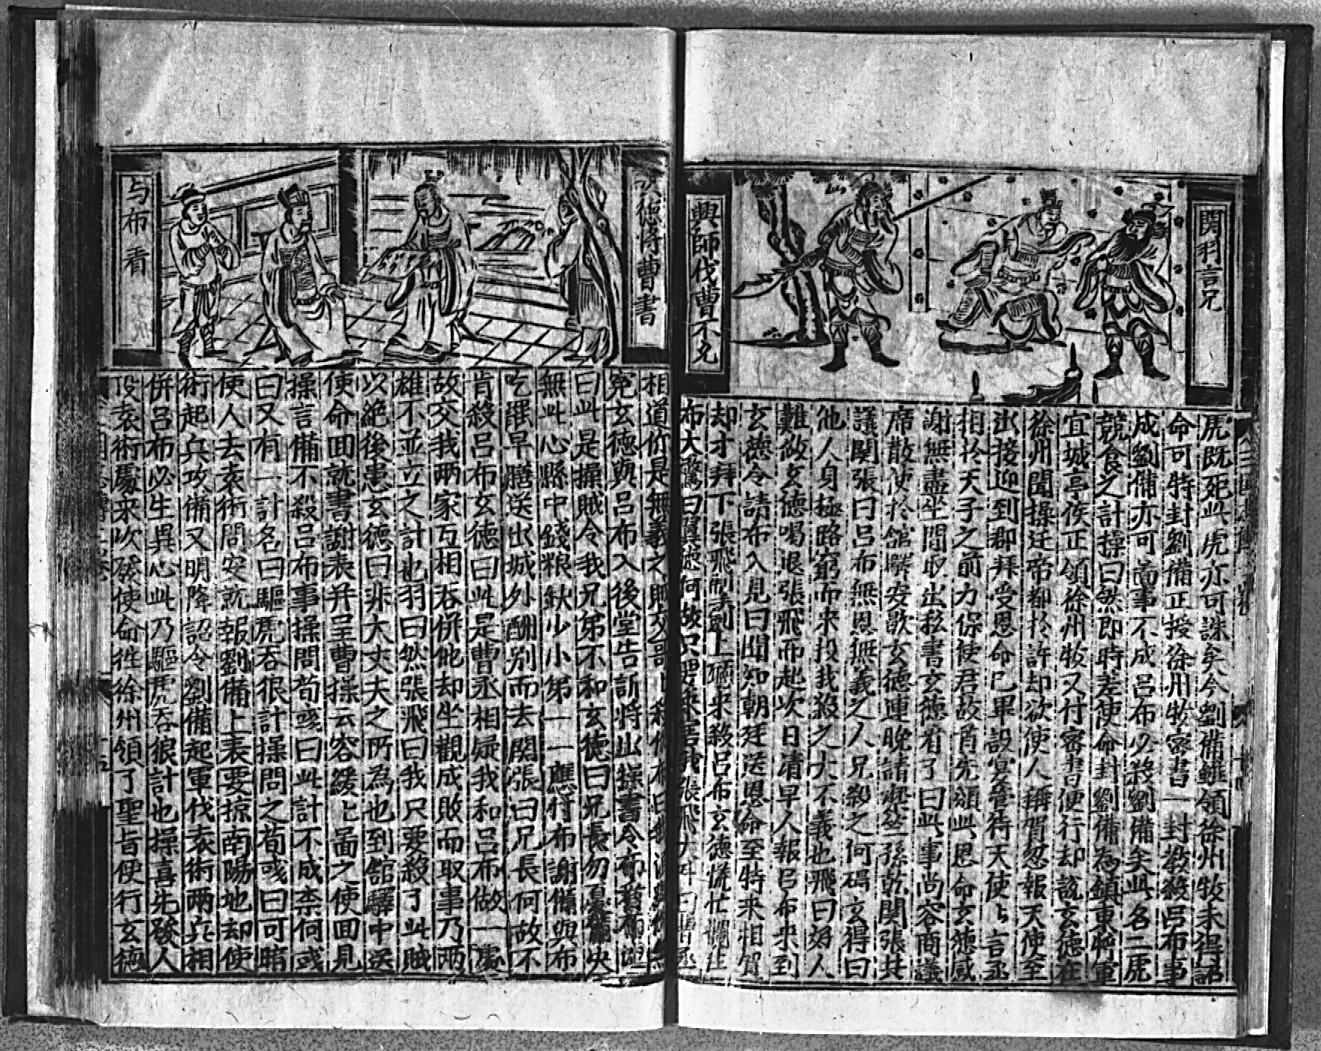 関羽言兄
興師伐曹不允
虎既死此虎亦可誅矣今劉備雖領徐州牧未得詔
命可特封劉備正授徐州牧密書一封教殺呂布事
成劉備亦可啚事不成呂布必殺劉備矣此名二虎
競食之計操曰然即時差使命封劉備為鎮東將軍
宜城亭侯正領徐州牧又付密書便行却說玄德在
徐州聞操迁帝都於許却欲使人稱賀忽報天使至
出接迎到郡拜受恩命已畢設宴管待天使使言丞
相於天子之前力保使君故首先頒此恩命玄德感
謝無盡坐間取出私書玄德看了曰此事尚容商議
席散使於館驛安歇玄德連晚請糜竺孫乾関張共
議関張曰呂布無恩無義之人兄殺之何碍玄得曰
他人身極路窮而來投我殺之大不義也飛曰好人
難做玄德喝退張飛而起次日清早人報呂布來到
玄德令請布入見曰聞知朝廷送恩命至特來相賀
却才拜下張飛 劍上 來殺呂布玄德慌忙 住
布大驚曰翼德何故只要來 我張飛
德將曹書
与布看
相道你是無義之
兄玄德與呂布入後堂告訴將此操書令布看布
曰此是操賊令我兄弟不和玄德曰兄長勿憂備決
無此心縣中錢粮缺少小弟一一應付布謝備與布
吃罷早膳送出城外酬別而去関張曰兄長何故不
肯殺呂布玄德曰此是曹丞相疑我和呂布做一處
故交我兩家互相吞併他却坐觀成敗而取事乃兩
雄不並立之計也羽曰然張飛曰我只要殺了此賊
以絕後患玄德曰非大丈夫之所為也到館驛中送
使命回就書謝表并呈曹操云容緩匕啚之使回見
操言備不殺呂布事操問荀彧曰此計不成柰何彧
曰又有一計名曰驅虎吞狼計操問之荀彧曰可暗
使人去袁術問安就報劉備上表要掠南陽地却使
術起兵攻備又明降詔令劉備起軍伐袁術兩兵相
併呂布必生異心此乃驅虎吞狼計也操喜先發人
没袁術處來次發使命徃徐州領了聖旨便行玄德